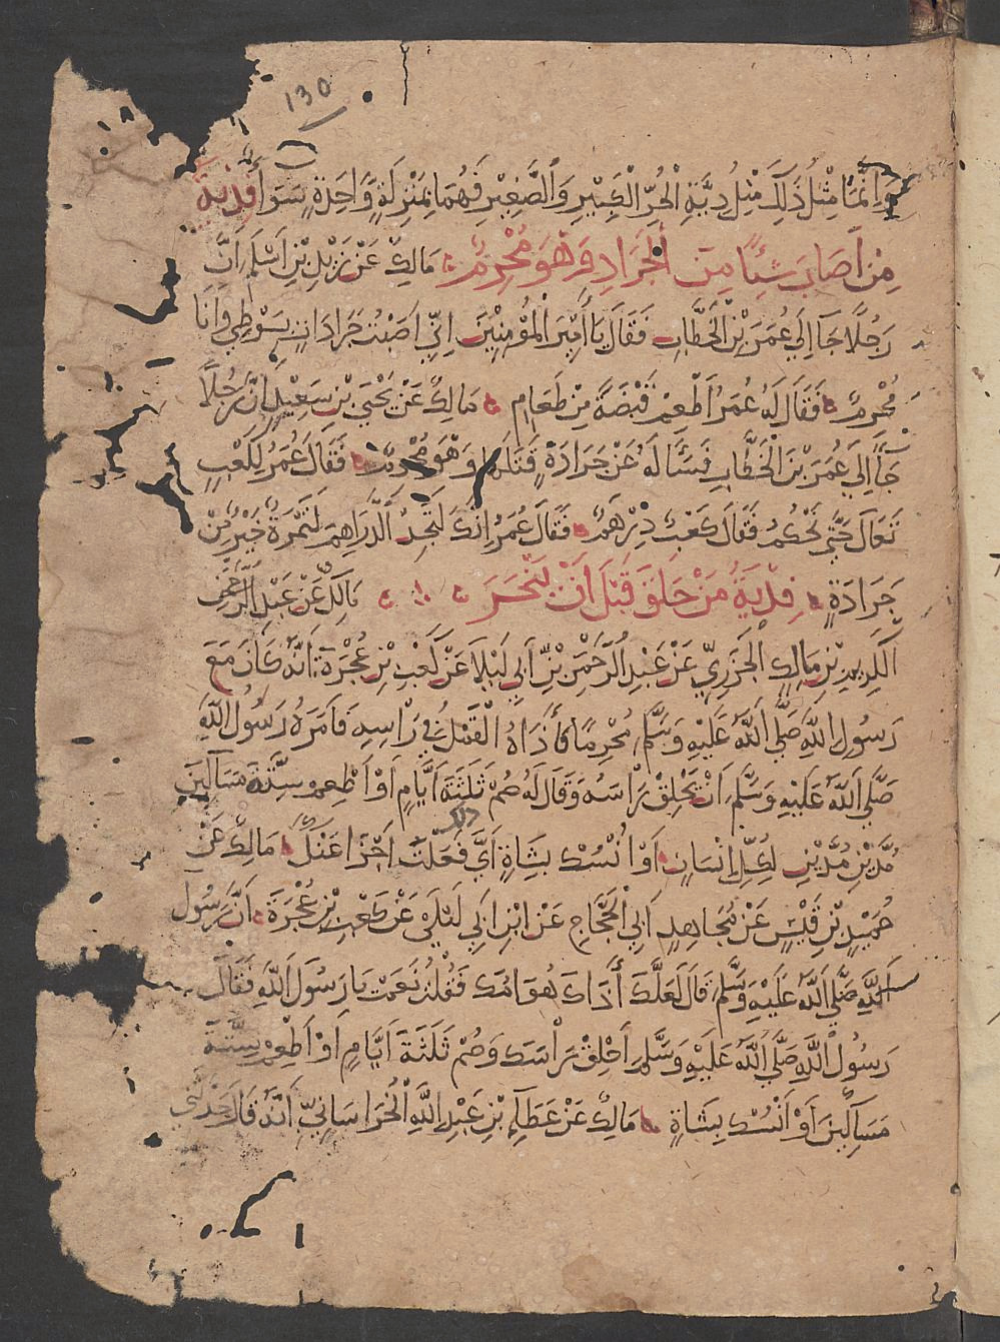 130
وَاِنَّمَا مِثْلُ ذَلِكَ مِثْلُ دِيَّةِ الْحُرِّ الْكَبِيْرِ وَالصَّغِيْرِ فَهُمَا بِمَنْزِلَةٍ وَّاحِدَةٍ سَوَا فِدْيَةُ
مِنْ اَصَابَ شَيْئًا مِنَ الْجَرَادِ وَهْوَ مُحْرِمٌ مَالِكٌ عَنْ زَيْدِ بْنِ اَسْلَمَ اَنَّ
رَجُلًا جَآ اِلَي عُمَرَ بْنِ الْخَطَّابِ فَقَالَ يَا اَمِيْرَ الْمُؤْمِنِيْنَ اِنِّي اَصَبْتُ جَرَادَاتٍ بِسَوْطِي وَانَا
مُحْرِمٌ فَقَالَ لَهُ عُمَرُ اَطْعِمْ قَبْضَةً مِّنْ طَعَامٍ مَالِكٌ عَنْ يَحْيَي بْنِ سَعِيْدٍ اَنَّ رَجُلًا
جَآ اِلَي عُمَرَ بْنَ الْخَطَّابِ فَسَئَالَهُ عَنْ جَرَادَةٍ قَتَلَهَا وَهْوَ مُحْرِمٌ فَقَالَ عُمَرُ لِكَعْبٍ
تَعَالَ حَتَّي نَحْكُمُ فَقَالَ كَعْبٌ دِرْهَمٌ فَقَالَ عُمَرُ اِنَّكَ لَتَجِدُ الدَّرَاهِمَ لَتَمْرَةٌ خَيْرٌ مِّنْ
جَرَادَةٍ فِدْيَةُ مَنْ حَلَقَ قَبْلَ اَنْ يَنْحَرَ مَالِكٌ عَنْ عَبْدِ الرَّحْمَنِ
الْكَرِيمِ بْنِ مَالِكِ الْجَزَرِيِّ عَنْ عَبْدِ الرَّحْمَنِ بْنِ اَبِي لَيْلَا عَنْ كَعْبِ بْنِ عُجْرَةَ اَنَّهُ كَانَ مَعَ
رَسُوْلِ اللَّهِ صَلَّي اللَّهُ عَلَيْهِ وَسَلَّمَ مُحْرِمًا فَأَذَاهُ الْقَمْلُ فِي رَاْسِهِ فَامَرَهُ رَسُوْلُ اللَّهِ
صَلَّي اللَّهُ عَلَيْهِ وَسَلَّمَ اَنْ يَّحْلِقَ رَاْسَهُ وَقَالَ لَهُ صُمْ ثَلَثَةَ اَيَّامٍ اَوْ اَطْعِمْ سِتَّةَ مَسَاكِينَ
ذلك
مُدَّيْنِ مُدَّيْنِ لِكُلِّ اِنْسَانٍ اَوْ اُنْسُكْ بِشَاةٍ اَيَّ فَعَلْتَ اَجْزَا عَنْكَ مَالِكٌ عَنْ
حُمَيْدِ بْنِ قَيْسٍ عَنْ مُجَاهِدٍ اَبِي الْحَجَّاجِ عَنْ ابْنِ اَبِي لَيْلَي عَنْ كَعْبِ بْنِ عُجْرَةَ اَنَّ رَسُوْلَ
اللَّهِ صَلَّي اللَّهُ عَلَيْهِ وَسَلَّمَ قَالَ لَعَلَّكَ أَذَاكَ هُوَامُّكَ فَقُلْتُ نَعَمْ يَا رَسُوْلَ اللَّهِ فَقَالَ
رَسُوْلُ اللَّهِ صَلَّي اللَّهُ عَلَيْهِ وَسَلَّمَ اَحْلِقْ رَاْسَكَ وَصُمْ ثَلَثَةَ اَيَّامٍ اَوْ اَطْعِمْ سِتَّةَ
مَسَاكِيْنَ اَوْ اَنْسُكْ بِشَاةٍ مَالِكٌ عَنْ عَطَآءِ بْنِ عَبْدِ اللَّهِ الْخُرَاسَانِيِّ اَنَّهُ قَالَ حَدَّثَنِي